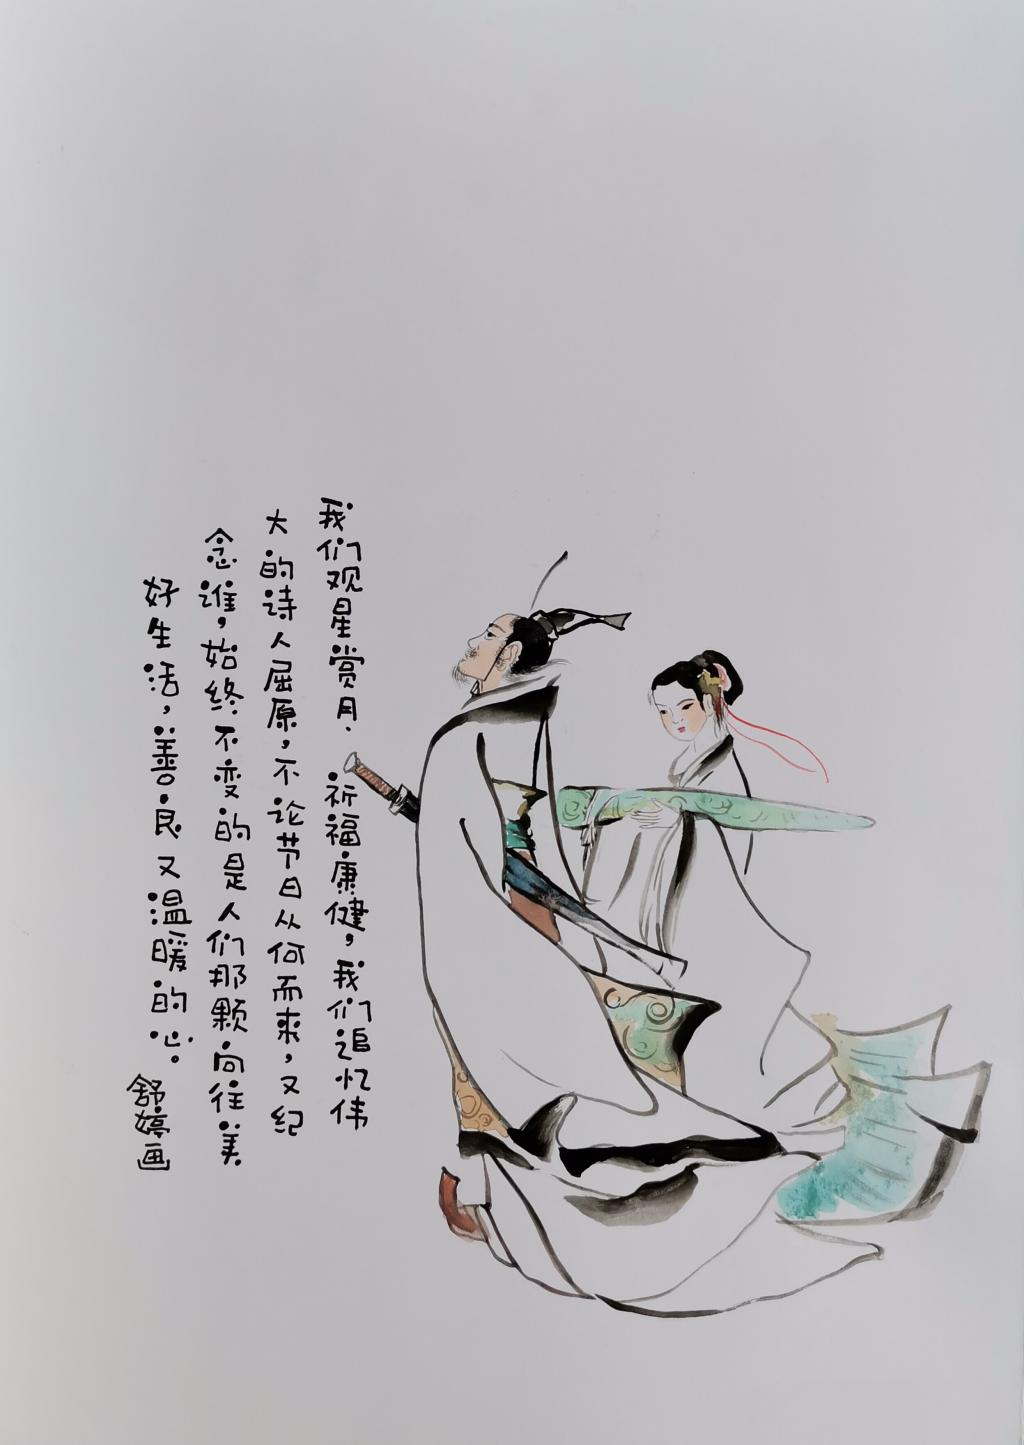 我们观星赏月.祈福康健,我们追忆伟
大的诗人屈原,不论节日从何而来,又纪
念谁,始终不变的是人们那颗向往美
好生活,善良又温暖的心。
舒婷画